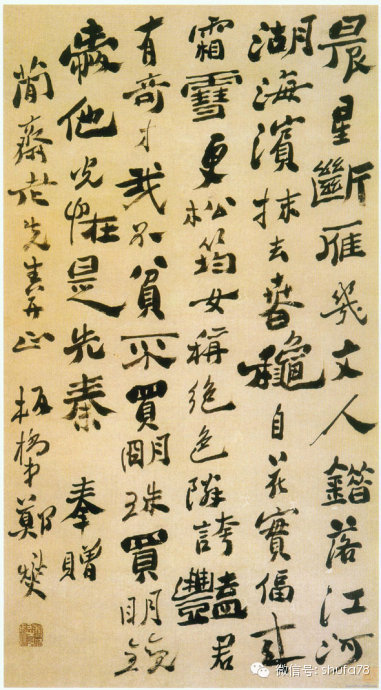 晨星斷雁幾文人錯落江河
湖海濱抹去春龝自花實偪來
霜雪更枯筠女稱絕色鄰誇豔君
有奇才我不貧不買明珠買明鏡
愛他光怪是先秦 奉贈
簡齋老先生正 板橋弟鄭燮
微信号: shufa78